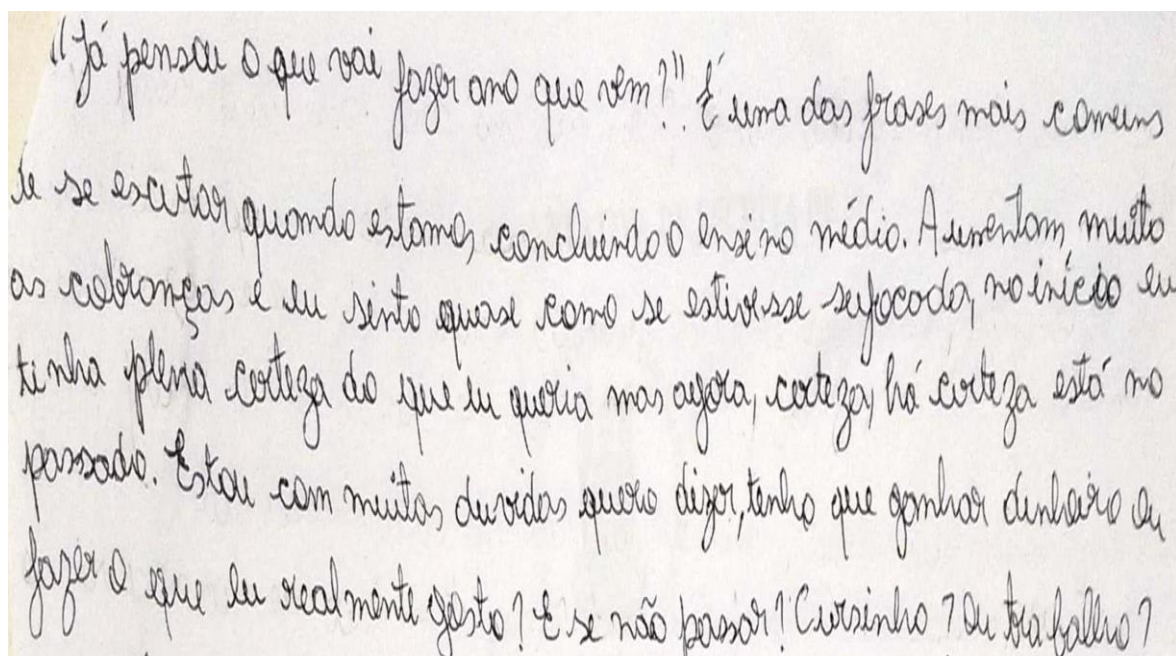 "Já pensou o que vai fazer ano que vem?" É uma das frases mais comuns
de se escutar quando estamos concluendo o ensino médio. Aumentam muito
as cobranças e eu sinto quase como se estivesse sufocada, no início eu
tinha plena certeza do que eu queria mas agora, certeza, há certeza está no
passado. Estou com muitas duvidas quero dizer, tenho que ganhar dinheiro ou
fazer o que eu realmente gosto? E se não passar? Cursinho? Ou trabalho?